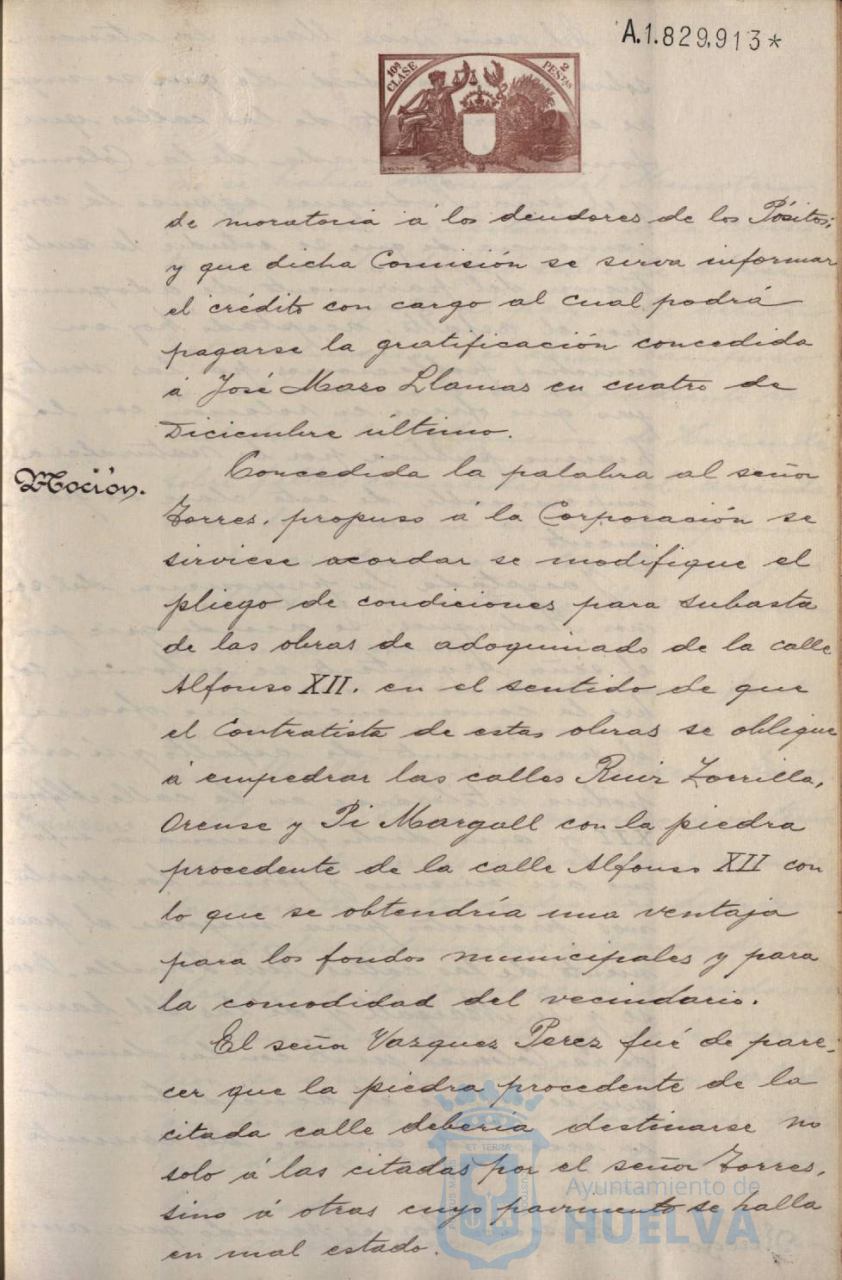 A.1.829,913*
10ª CLASE 2 PESTAS
de moratoria á los deudores de los Pósitos;
y que dicha Comisión se sirva informar
el crédito con cargo al cual podrá
pagarse la gratificación concedida
á José Mazo Llamas en cuatro de
Diciembre último.
Moción.
Concedida la palabra al señor
Torres, propuso á la Corporación se
sirviese acordar se modifique el
pliego de condiciones para subasta
de las obras de adoquinado de la calle
Alfonso XII. en el sentido de que
el Contratista de estas obras se obligue
á empedrar las calles Ruiz Zorrilla,
Orense y Pi Margall con la piedra
procedente de la calle Alfonso XII con
lo que se obtendría una ventaja
para los fondos municipales y para
la comodidad del vecindario.
El señor Vazquez Perez fué de pare-
cer que la piedra procedente de la
citada calle debería destinarse no
solo á las citadas por el señor Torres,
sino á otras cuyo pavimento se halla
en mal estado.
Ayuntamiento de
HUELVA